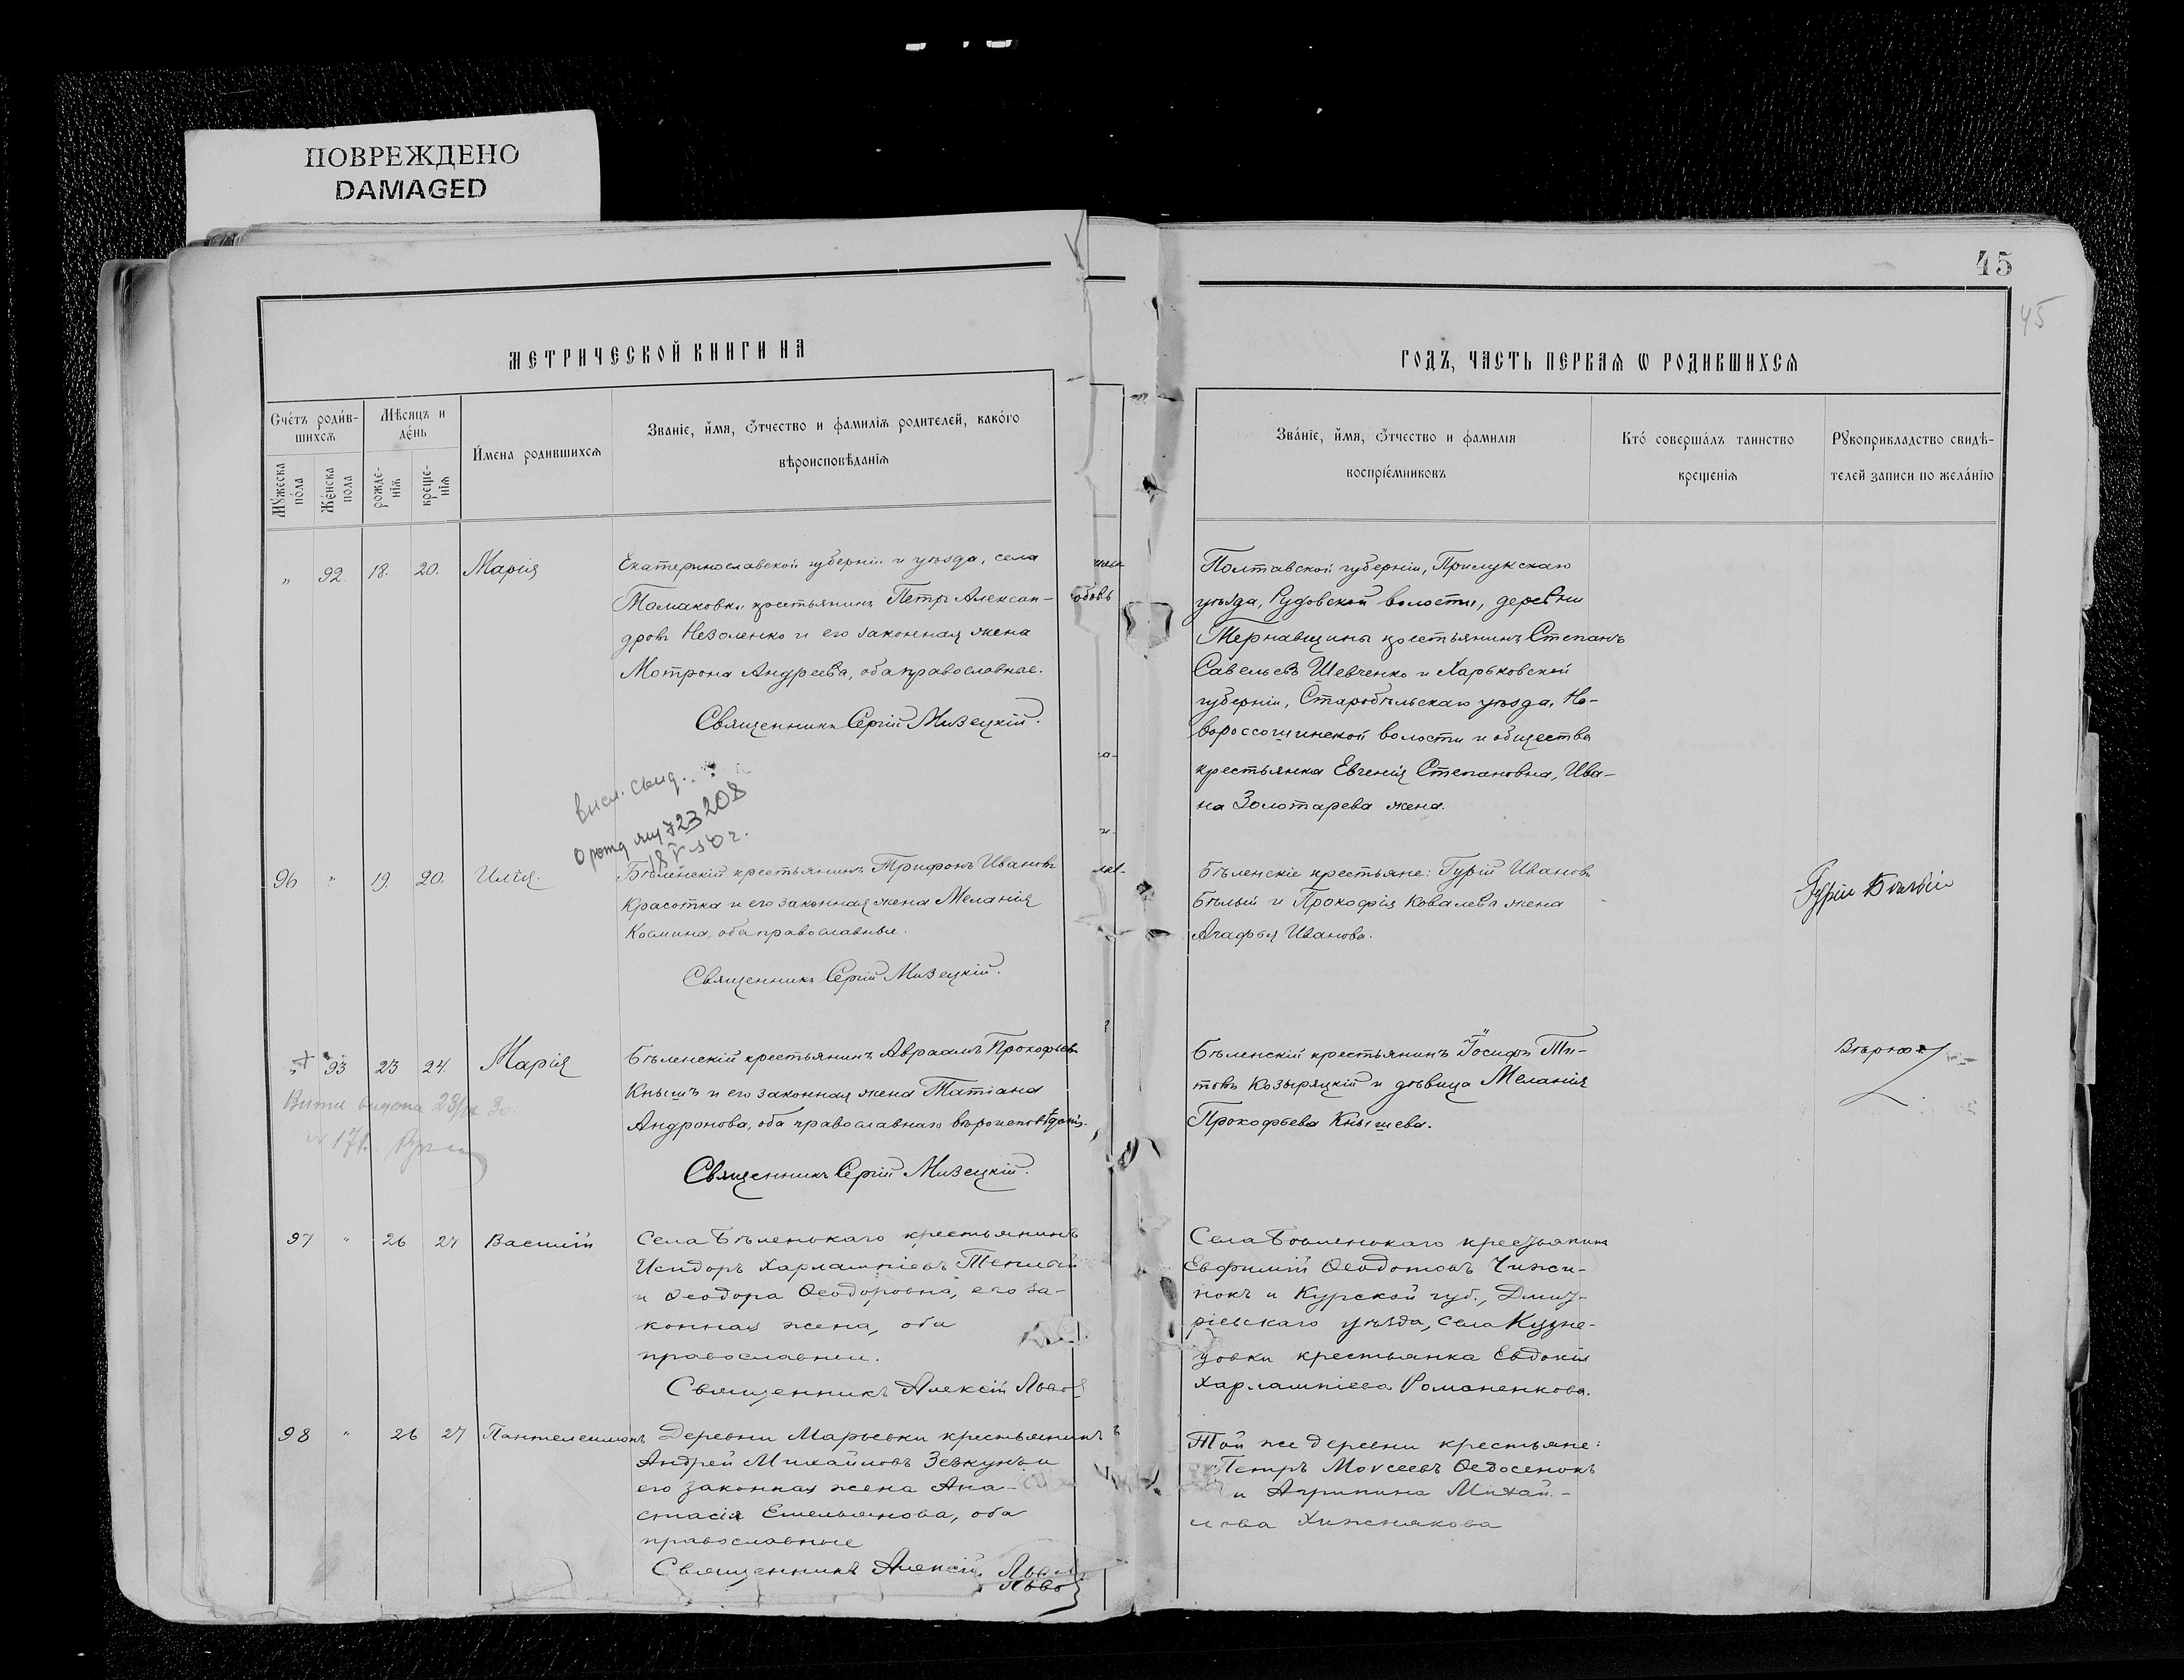 ПОВРЕЖДЕНО
DAMAGED
45
45
МЕТРИЧЕСКОЙ КНИГИ НА
ГОДЪ, ЧАСТЬ ПЕРВАѦ Ѡ РОДИВШИХСѦ
Счéтъ роди́в-
шихсѧ
Мѣсяцъ и
де́нь
И́мена родившихсѧ
Званїе, и́мя, ѻ҆́тчество и фамилїѧ родителей, како́го
вѣроисповѣданїѧ
Мꙋ́жеска
по́ла
Же́нска
пола
рожде-
нїѧ
креще-
нїѧ
Зва́нїе, и́мя, ѻ҆́тчество и фамилїя
воспрїе́мниковъ
Кто́ соверша́лъ таинство
крещенїѧ
Рꙋкоприкладство свидѣ-
телей записи по жела́нїю
" 92. 18. 20. Марія
Екатеринославской губерніи и уѣзда, села
Томаковки крестьянинъ Петръ Алексан-
дровъ Незоленко и его законная жена
Мотрона Андреева, оба православные.
Священникъ Сергій Мизецкій.
Полтавской губерніи, Прилукскаго
уѣзда, Рудовской волости, деревни
Тернавщины крестьянинъ Степанъ
Савельевъ Шевченко и Харьковской
губерніи, Старобѣльскаго уѣзда, Но-
вороссошинской волости и общества
крестьянка Евгенія Степановна, Ива-
на Золотарева жена.
свид.
723208
18 V
96 " 19. 20. Илія.
Бѣленскій крестьянинъ Трифонъ Ивановъ
Красотка и его законная жена Меланія
Космина, оба православные.
Священникъ Сергій Мизецкій.
Бѣленскіе крестьяне: Гурій Ивановъ
Бѣлый и Прокофія Ковалева жена
Агафья Иванова.
Гурій
93 23 24. Марія
Бѣленскій крестьянинъ Авраамъ Прокофьевъ
Кнышъ и его законная жена Татіана
Андронова, оба православнаго вѣроисповѣданія.
Священникъ Сергій Мизецкій.
Бѣленскій крестьянинъ Іосифъ Ти-
товъ Козыряцкій и дѣвица Меланія
Прокофьева Кнышева.
97 " 26 27 Василій
Села Бѣленькаго крестьянинъ
Исидоръ Харлампіевъ Теплый
и Ѳеодора Ѳеодоровна, его за-
конная жена, оба
православные.
Священникъ Алексій Львовъ
Села Бѣленькаго крестьянинъ
Евфимій Ѳеодотовъ Чижи-
нокъ и Курской губ., Дмит-
ріевскаго уѣзда, села Кузне-
цовки крестьянка Евдокія
Харлампіева Романенкова.
98 " 26 27 Пантелеимонъ
Деревни Марьевки крестьянинъ
Андрей Михайловъ Зезкунъ и
его законная жена Ана-
стасія Емельянова, оба
православные
Священникъ Алексій Львовъ
Той же деревни крестьяне:
Петръ Моѵсеевъ Ѳедосенокъ
и Агрипина Михай-
лова Хижнякова